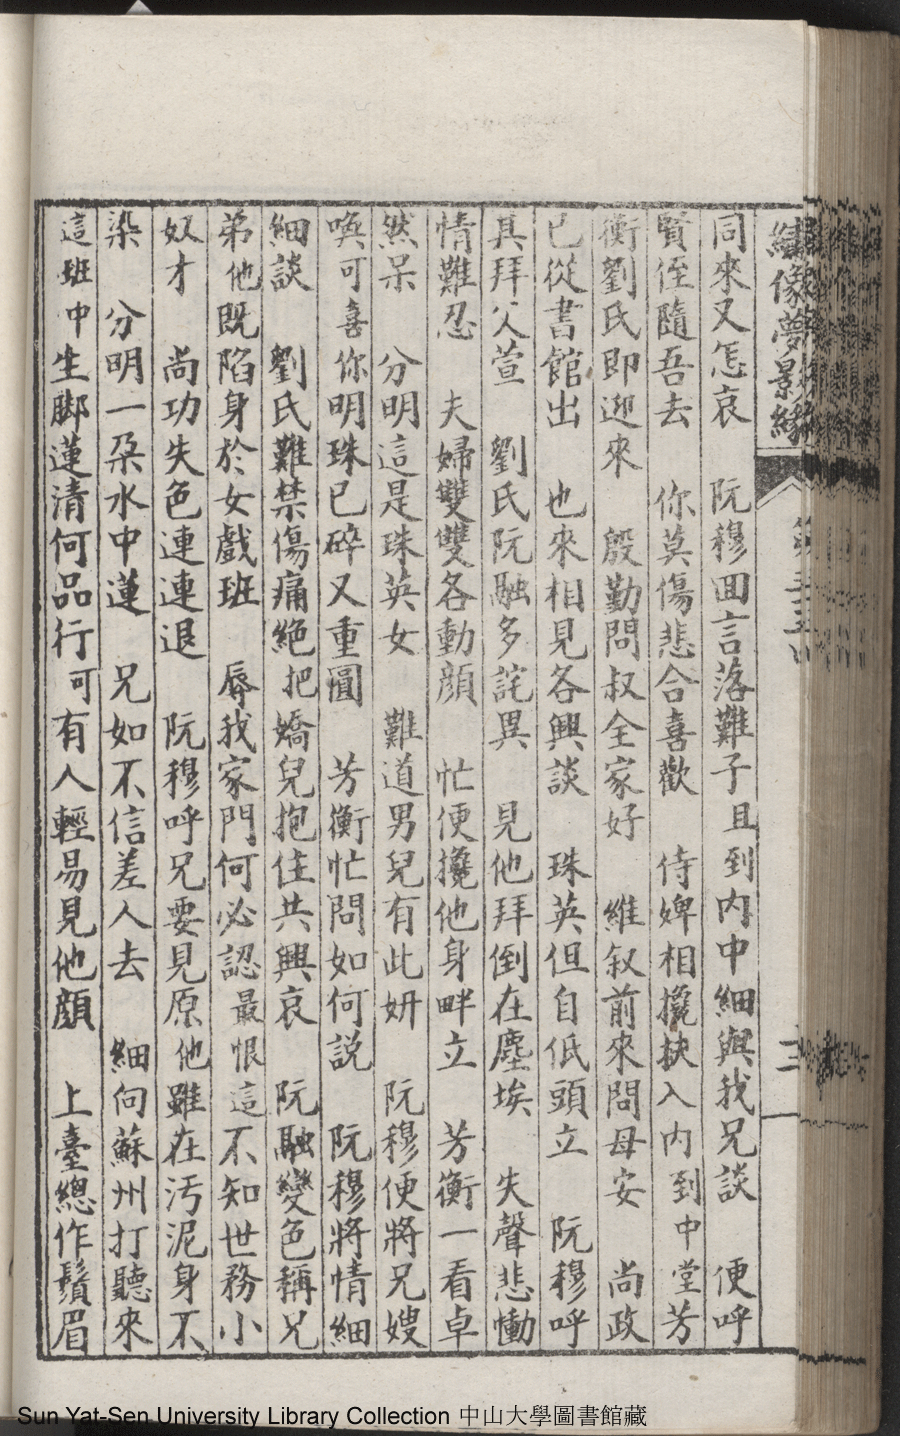 繡像夢影緣
同來又怎哀　阮穆回言落難子且到內中細與我兄談　便呼
賢侄隨吾去　你莫傷悲合喜歡　侍婢相攙扶入內到中堂芳
衡劉氏即迎來　殷勤問叔全家好　維叙前來問母安　尚政
已從書館出　也來相見各興談　珠英但自低頭立　阮穆呼
其拜父萱　劉氏阮融多詫異　見他拜倒在塵埃　失聲悲慟
情難忍　夫婦雙雙各動顏　忙便攙他身畔立　芳衡一看卓
然呆　分明這是珠英女　難道男兒有此妍　阮穆便將兄嫂
喚可喜你明珠已碎又重圓　芳衡忙問如何説　阮穆將情細
細談　劉氏難禁傷痛絕把嬌兒抱住共興哀　阮融變色稱兄
弟他既陷身於女戲班　辱我家門何必認最恨這不知世務小
奴才　尚功失色連連退　阮穆呼兄要見原他雖在污泥身不
染　分明一朶水中蓮　兄如不信差人去　細向蘇州打聽來
這班中生脚蓮清何品行可有人輕易見他顏　上臺總作鬚眉
Sun Yat-Sen University Library Collection 中山大學圖書館藏